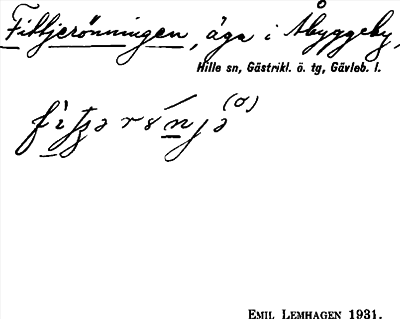 Fittjerönningen, äga i Åbyggeby,
Hille sn, Gästrikl. ö. tg, Gävleb. l.
EMIL LEMHAGEN 1931.